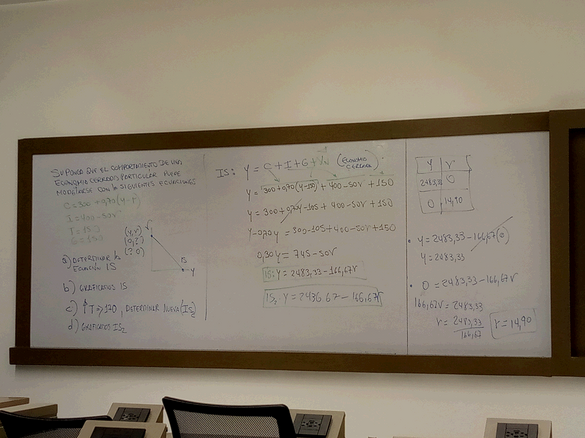 SUPONGA QUE EL COMPORTAMIENTO DE UNA
ECONOMIA CERRADA PARTICULAR PUEDE
MODELARSE CON LAS SIGUIENTES ECUACIONES:
C=300+0,70(Y-T)
I=400-50r
T=150
G=150
a) DETERMINAR LA
ECUACIÓN IS
b) GRAFICAR IS
c) ↑T⇒170, DETERMINAR NUEVA (IS₂)
d) GRAFICAR IS₂
r
(Y,r)
(0,?)
(?,0)
IS
Y
IS: Y = C + I + G + XN (ECONOMÍA CERRADA)
Y = 300+0,70(Y-150) + 400-50r + 150
Y = 300+0,70Y-105 + 400-50r + 150
Y-0,70Y = 300-105+400-50r+150
0,30Y = 745-50r
IS: Y = 2483,33-166,67r
IS₂ Y = 2436,67-166,67r
Y | r
2483,33 | 0
0 | 14,90
• Y = 2483,33-166,67(0)
Y = 2483,33
• 0 = 2483,33-166,67r
166,67r = 2483,33
r = 2483,33
166,67
r = 14,90